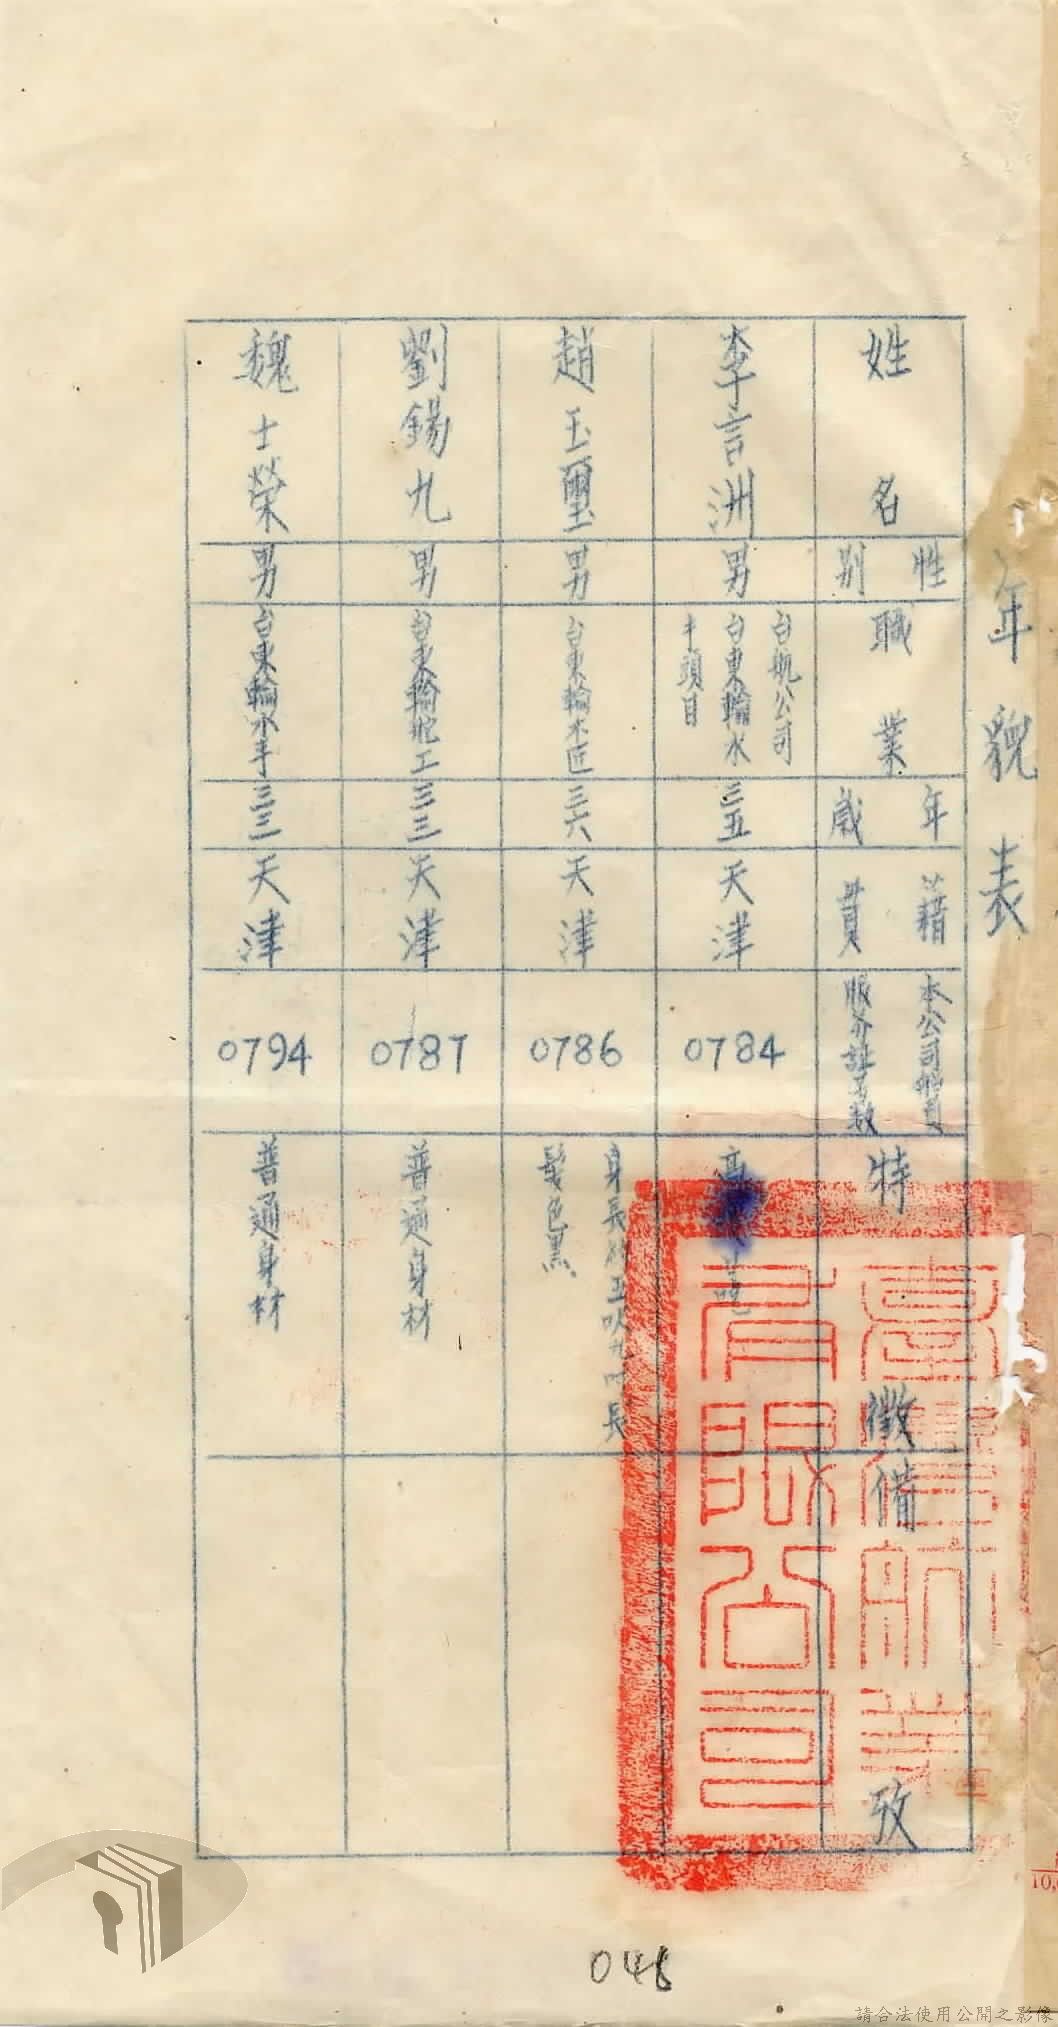 年貌表
姓名
性別
職業
年歲
籍貫
本公司船員
服務証号数
特徵
備攷
李言洲
男
台航公司
台東輪水
手頭目
三五
天津
0784
趙玉璽
男
台東輪木匠
三六
天津
0786
身長約五呎九吋長
髮色黑
劉錫九
男
台東輪舵工
三三
天津
0787
普通身材
魏士榮
男
台東輪水手
三三
天津
0794
普通身材
臺灣航業
有限公司
048
請合法使用公開之影像